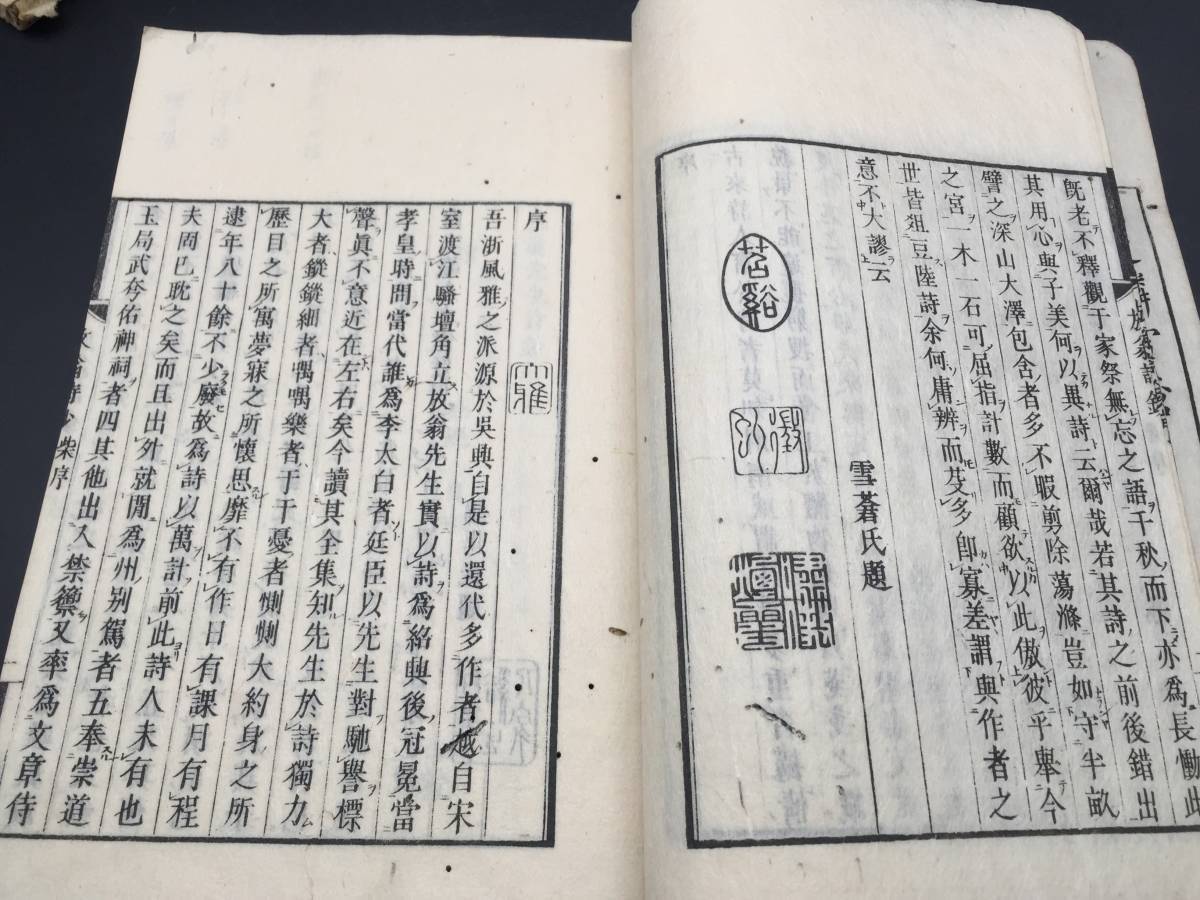 既老不釋觀于家祭無忘之語千秋而下亦為長慟此
其用心與子美何以異詩云爾哉若其詩之前後錯出
譬之深山大澤包含者多不暇剪除蕩滌豈如守半畝
之宮一木一石可屈指計數而顧欲以此傲彼乎舉今
世皆俎豆陸詩余何庸辨而芟多卽寡差謂與作者之
意不大謬云
雪蒼氏題
苕谿
序
大雅
吾浙風雅之派源於吳興自是以還代多作者越自宋
室渡江騷壇角立放翁先生實以詩爲紹興後冠冕當
孝皇時問當代誰爲李太白者廷臣以先生對馳譽標
聲眞不意近在左右矣今讀其全集知先生於詩獨力
大者鏦細者喁喁樂者于于憂者惻惻大約身之所
歷目之所寓夢寐之所懷思靡不有作日有課月有程
逮年八十餘不少廢故爲詩以萬計前此詩人未有也
夫周巳耽之矣而且出外就閒爲州別駕者五奉崇道
玉局武夸佑神祠者四其他出入禁籞又率爲文章侍
柴序